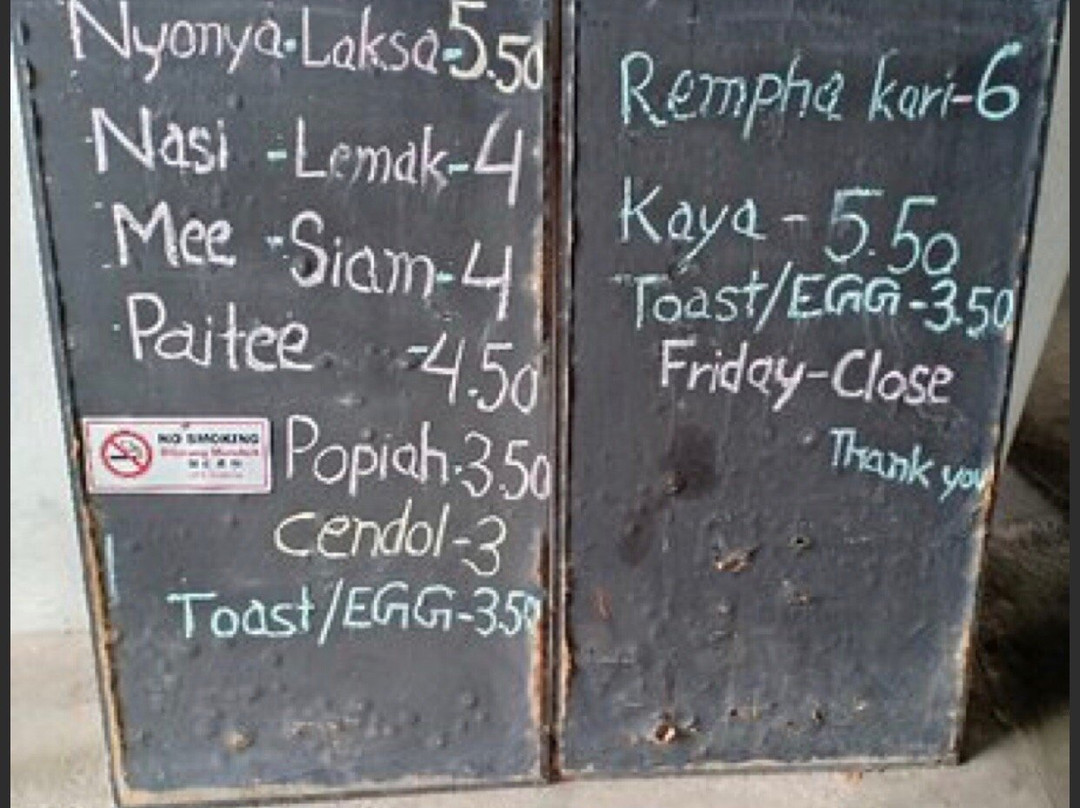 Nyonya-Laksa-5.50
Nasi -Lemak-4
Mee -Siam-4
Paitee -4.50
NO SMOKING
Popiah-3.50
Cendol-3
Toast/EGG-3.50
Rempha kari-6
Kaya - 5.50
Toast/EGG-3.50
Friday-Close
Thank you